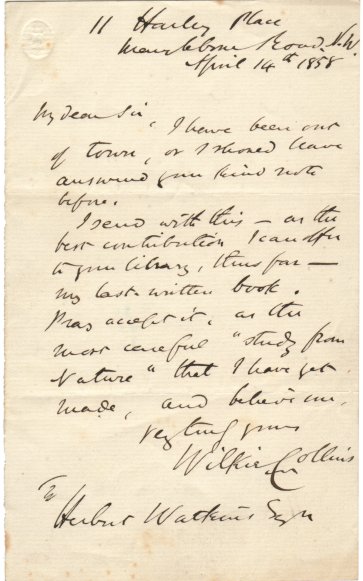 11 Harley Place
Marylebone Road. N.W.
April 14th 1858
My dear Sir,
I have been out
of town, or I should have
answered your kind note
before.
I send with this – as the
best contribution I can offer
to your library, thus far –
my last-written book.
Pray accept it, as the
most careful "study from
Nature" that I have yet
made, and believe me,
very truly yours
Wilkie Collins
To
Herbert Watkins Esqre